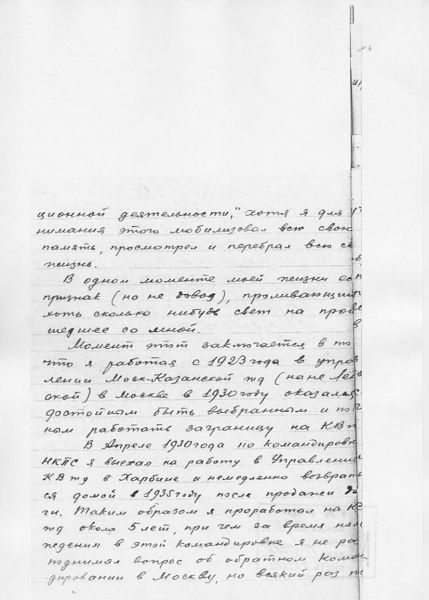 ционной деятельности," хотя я для у
нимания этого мобилизовал всю свою
память, просмотрел и перебрал всю св
жизнь.
В одном моменте моей жизни ес
признак (но не довод), проливающий
хоть сколько нибудь свет на прои
шедшее со мной.
Момент этот заключается в то
что я работая с 1923 года в упра
лении Моск-Казанской жд (ныне Лен
ской) в Москве в 1930 году оказался
достойным быть выбранным и
ным работать заграницу на КВ
В Апреле 1930 года по командировк
НКПС я выехал на работу в Управлении
КВжд в Харбине и немедленно возврат
ся домой в 1935 году после продажи
ги. Таким образом я проработал на К
жд около 5 лет, при чем за время нах
ждения в этой командировке я не ра
поднимал вопрос об обратном коман
дировании в Москву, но всякий раз